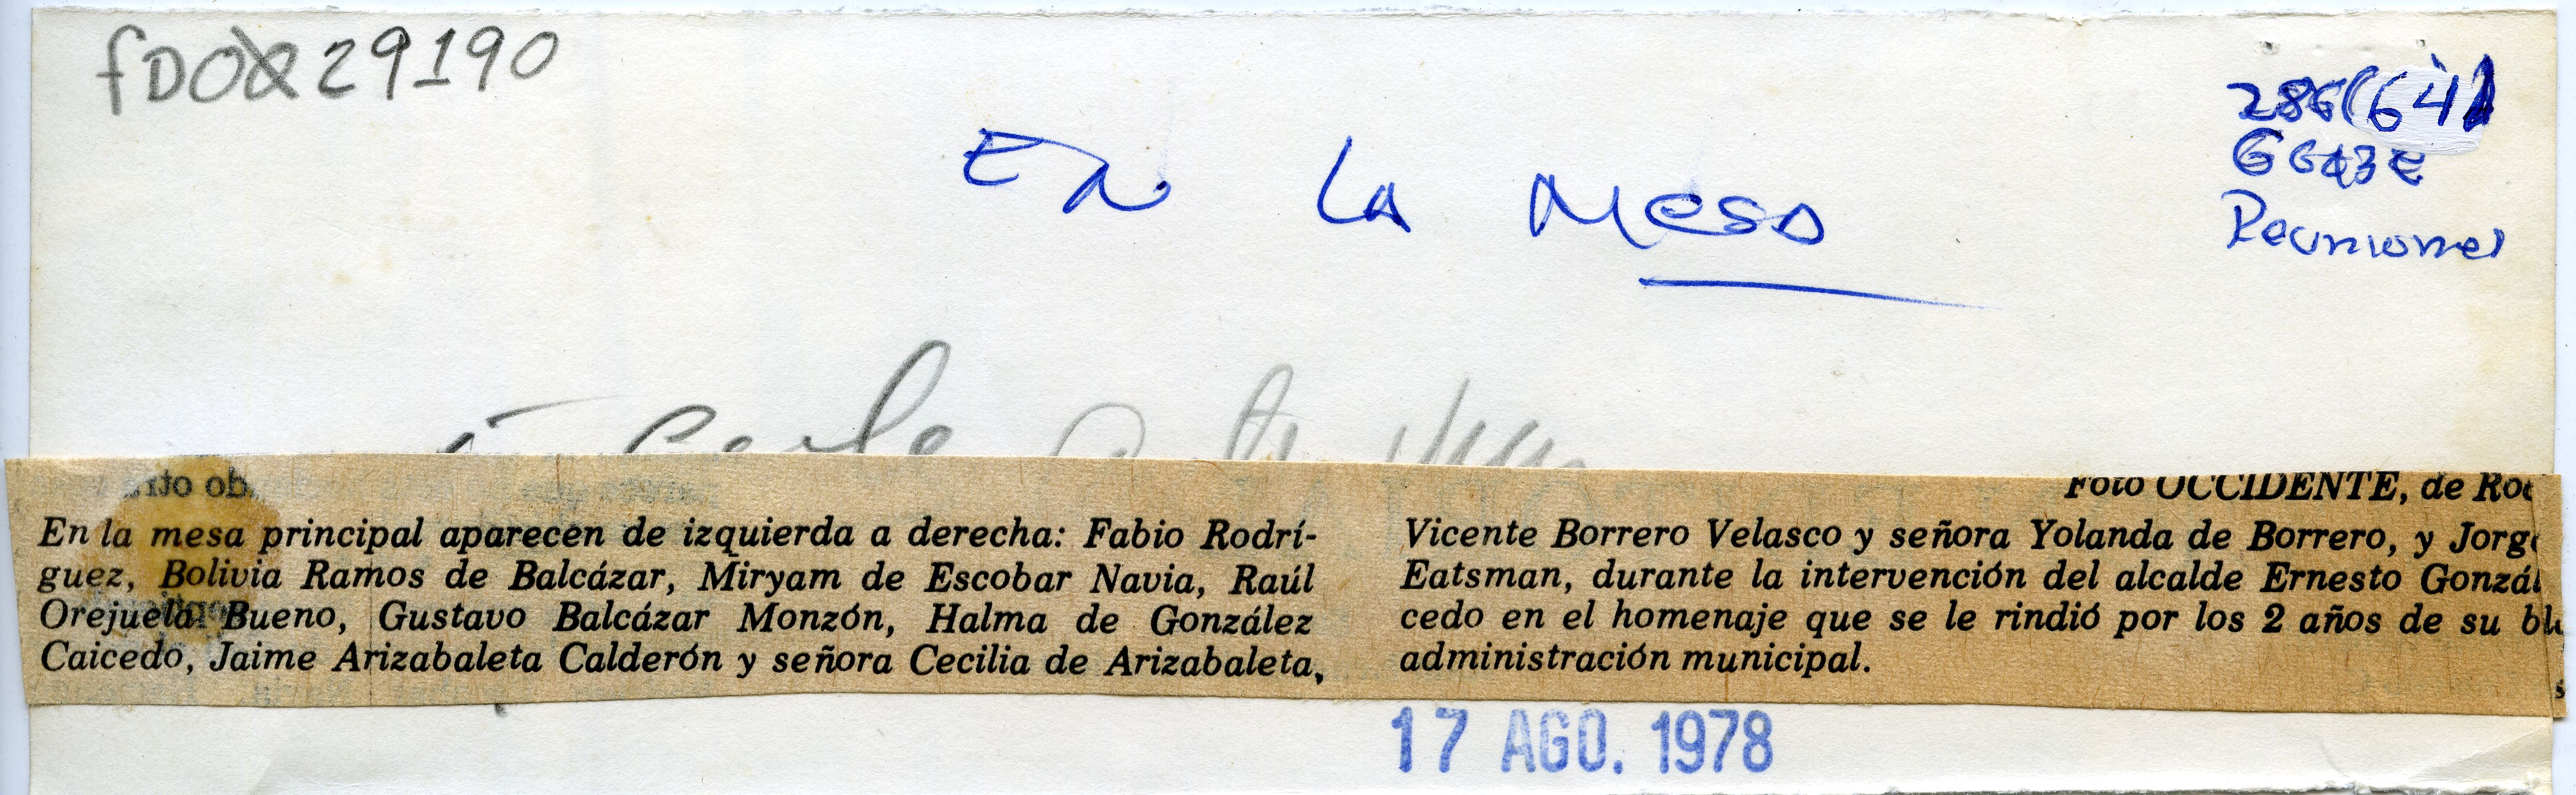 29190
En la mesa
Reuniones
Foto OCCIDENTE, de
En la mesa principal aparecen de izquierda a derecha: Fabio Rodrí-
guez, Bolivia Ramos de Balcázar, Miryam de Escobar Navia, Raúl
Orejuela Bueno, Gustavo Balcázar Monzón, Halma de González
Caicedo, Jaime Arizabaleta Calderón y señora Cecilia de Arizabaleta,
Vicente Borrero Velasco y señora Yolanda de Borrero, y Jorge
Eatsman, durante la intervención del alcalde Ernesto Gonzál
cedo en el homenaje que se le rindió por los 2 años de su
administración municipal.
17 AGO. 1978